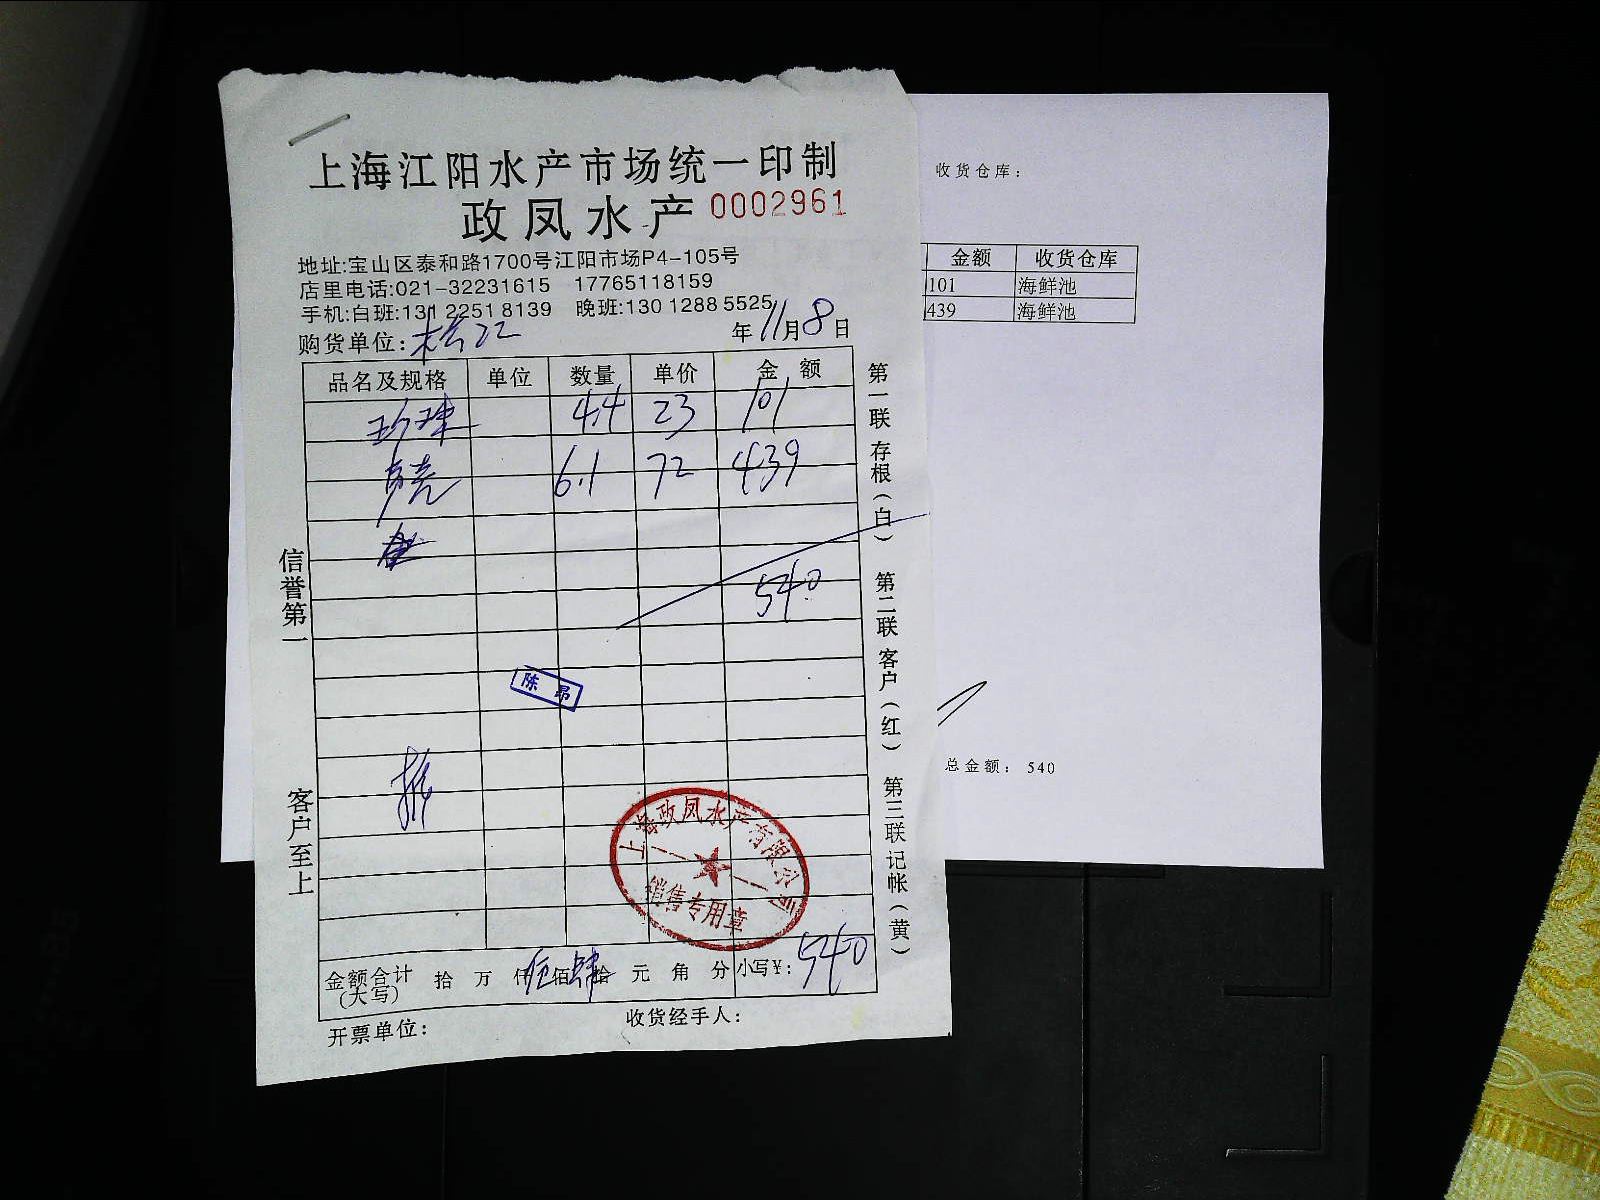 上海江阳水产市场统一印制
政凤水产 0002961
地址:宝山区泰和路1700号江阳市场P4-105号
店里电话:021-32231615 17765118159
手机:白班:131 2251 8139 晚班:130 1288 5525
购货单位: 松江 年 11 月 8 日
品名及规格 单位 数量 单价 金额
珍珠 4.4 23 101
6.1 72 439
540
陈昂
上海政凤水产有限公司
销售专用章
金额合计(大写) 拾 万 仟 伍 佰 肆 拾 元 角 分 小写¥: 540
开票单位: 收货经手人:
信誉第一
客户至上
第一联存根(白) 第二联客户(红) 第三联记帐(黄)
收货仓库:
金额 收货仓库
101 海鲜池
439 海鲜池
总金额: 540